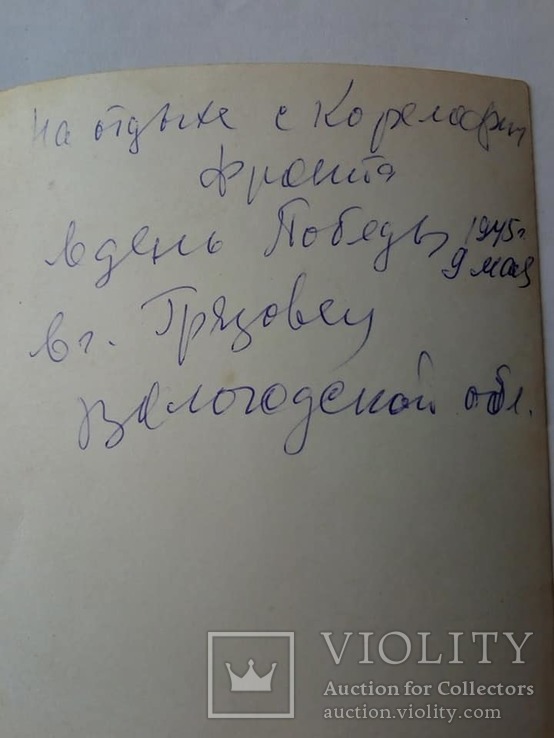 на отдыхе с Карелофин
фронта
в день Победы 1945г.
9 мая
в г. Грязовец
Вологодской обл.
VIOLITY
Auction for Collectors
auction.violity.com